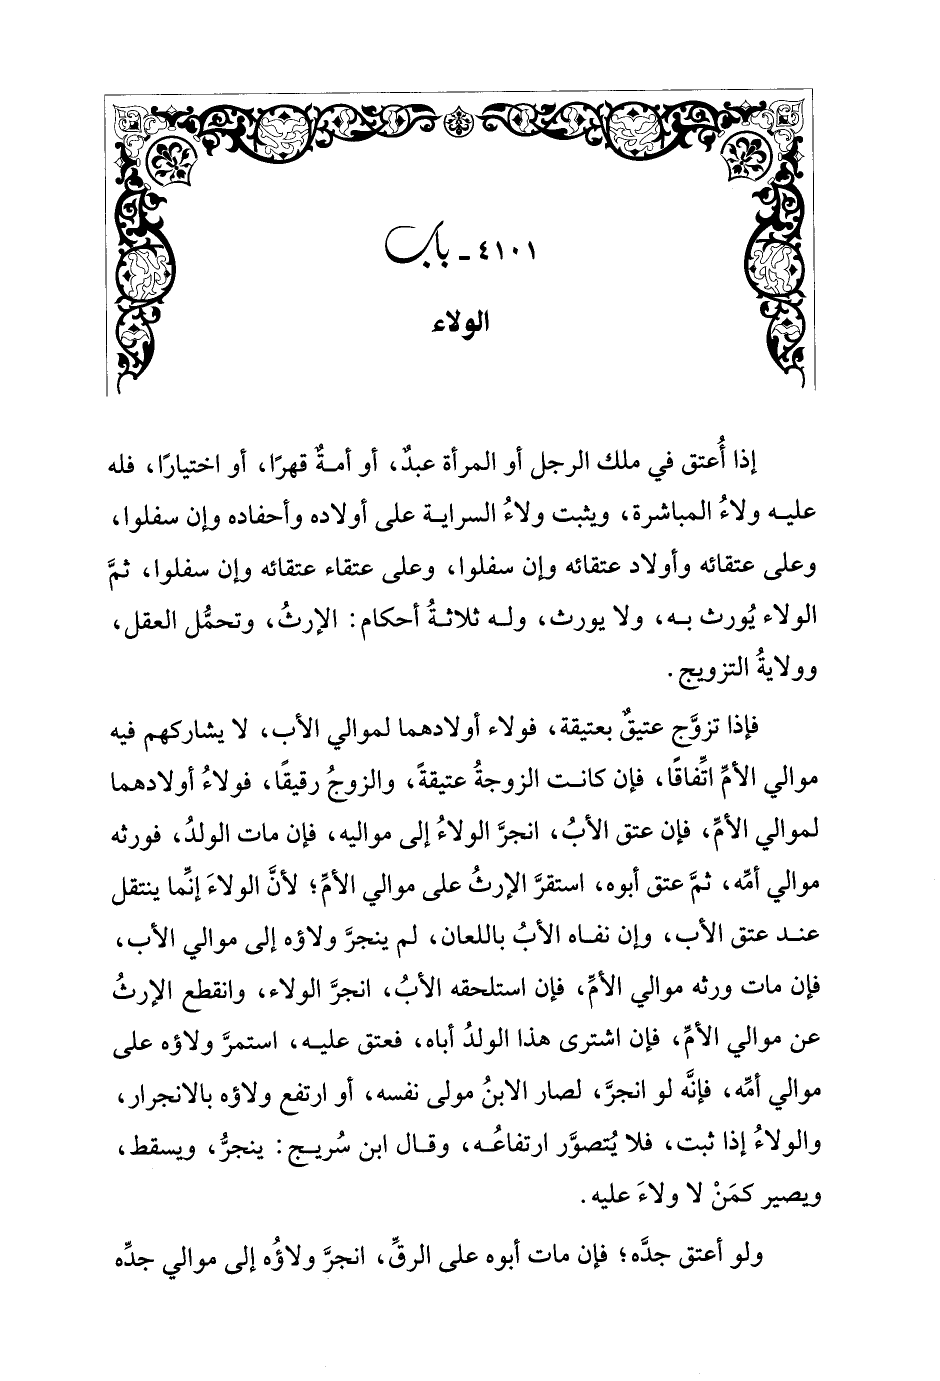 ٤١٠١ - باب
الولاء
إذا أُعتق في ملك الرجل أو المرأة عبدٌ، أو أمـةٌ قهرًا، أو اختيارًا، فله
عليـه ولاءُ المباشرة، ويثبت ولاءُ السرايـة على أولاده وأحفاده وإن سفلوا،
وعلى عتقائه وأولاد عتقائه وإن سفلوا، وعلى عتقاء عتقائه وإن سفلوا، ثمَّ
الولاء يُورث بـه، ولا يورث، ولـه ثلاثـةُ أحكام: الإرثُ، وتحمُّل العقل،
وولايةُ التزويج.
فإذا تزوَّج عتيقٌ بعتيقة، فولاء أولادهما لموالي الأب، لا يشاركهم فيه
موالي الأمِّ اتِّفاقًا، فإن كانـت الزوجةُ عتيقةً، والزوجُ رقيقًا، فولاءُ أولادهما
لموالي الأمِّ، فإن عتق الأبُ، انجرَّ الولاءُ إلى مواليه، فإن مات الولدُ، فورثه
موالي أمِّه، ثمَّ عتق أبوه، استقرَّ الإرثُ على موالي الأمِّ؛ لأنَّ الولاءَ إنَّما ينتقل
عنـد عتق الأب، وإن نفـاه الأبُ باللعان، لم ينجرَّ ولاؤه إلى موالي الأب،
فإن مات ورثه موالي الأمِّ، فإن استلحقه الأبُ، انجرَّ الولاء، وانقطع الإرثُ
عن موالي الأمِّ، فإن اشترى هذا الولدُ أباه، فعتق عليـه، استمرَّ ولاؤه على
موالي أمِّه، فإنَّه لو انجرَّ، لصار الابنُ مولى نفسه، أو ارتفع ولاؤه بالانجرار،
والولاءُ إذا ثبت، فلا يُتصوَّر ارتفاعُـه، وقـال ابن سُريـج: ينجرُّ، ويسقط،
ويصير كمَنْ لا ولاءَ عليه.
ولو أعتق جدَّه؛ فإن مات أبوه على الرقِّ، انجرَّ ولاؤُه إلى موالي جدِّه